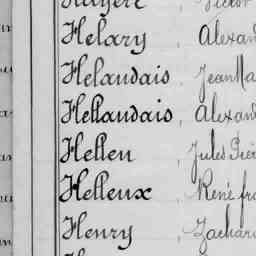 Victor
Helary, Alexan
Helaudais, Jean Ma
Hellaudais, Alexan
Hellen, Jules Pier
Helleux, René fra
Henry, Zachar